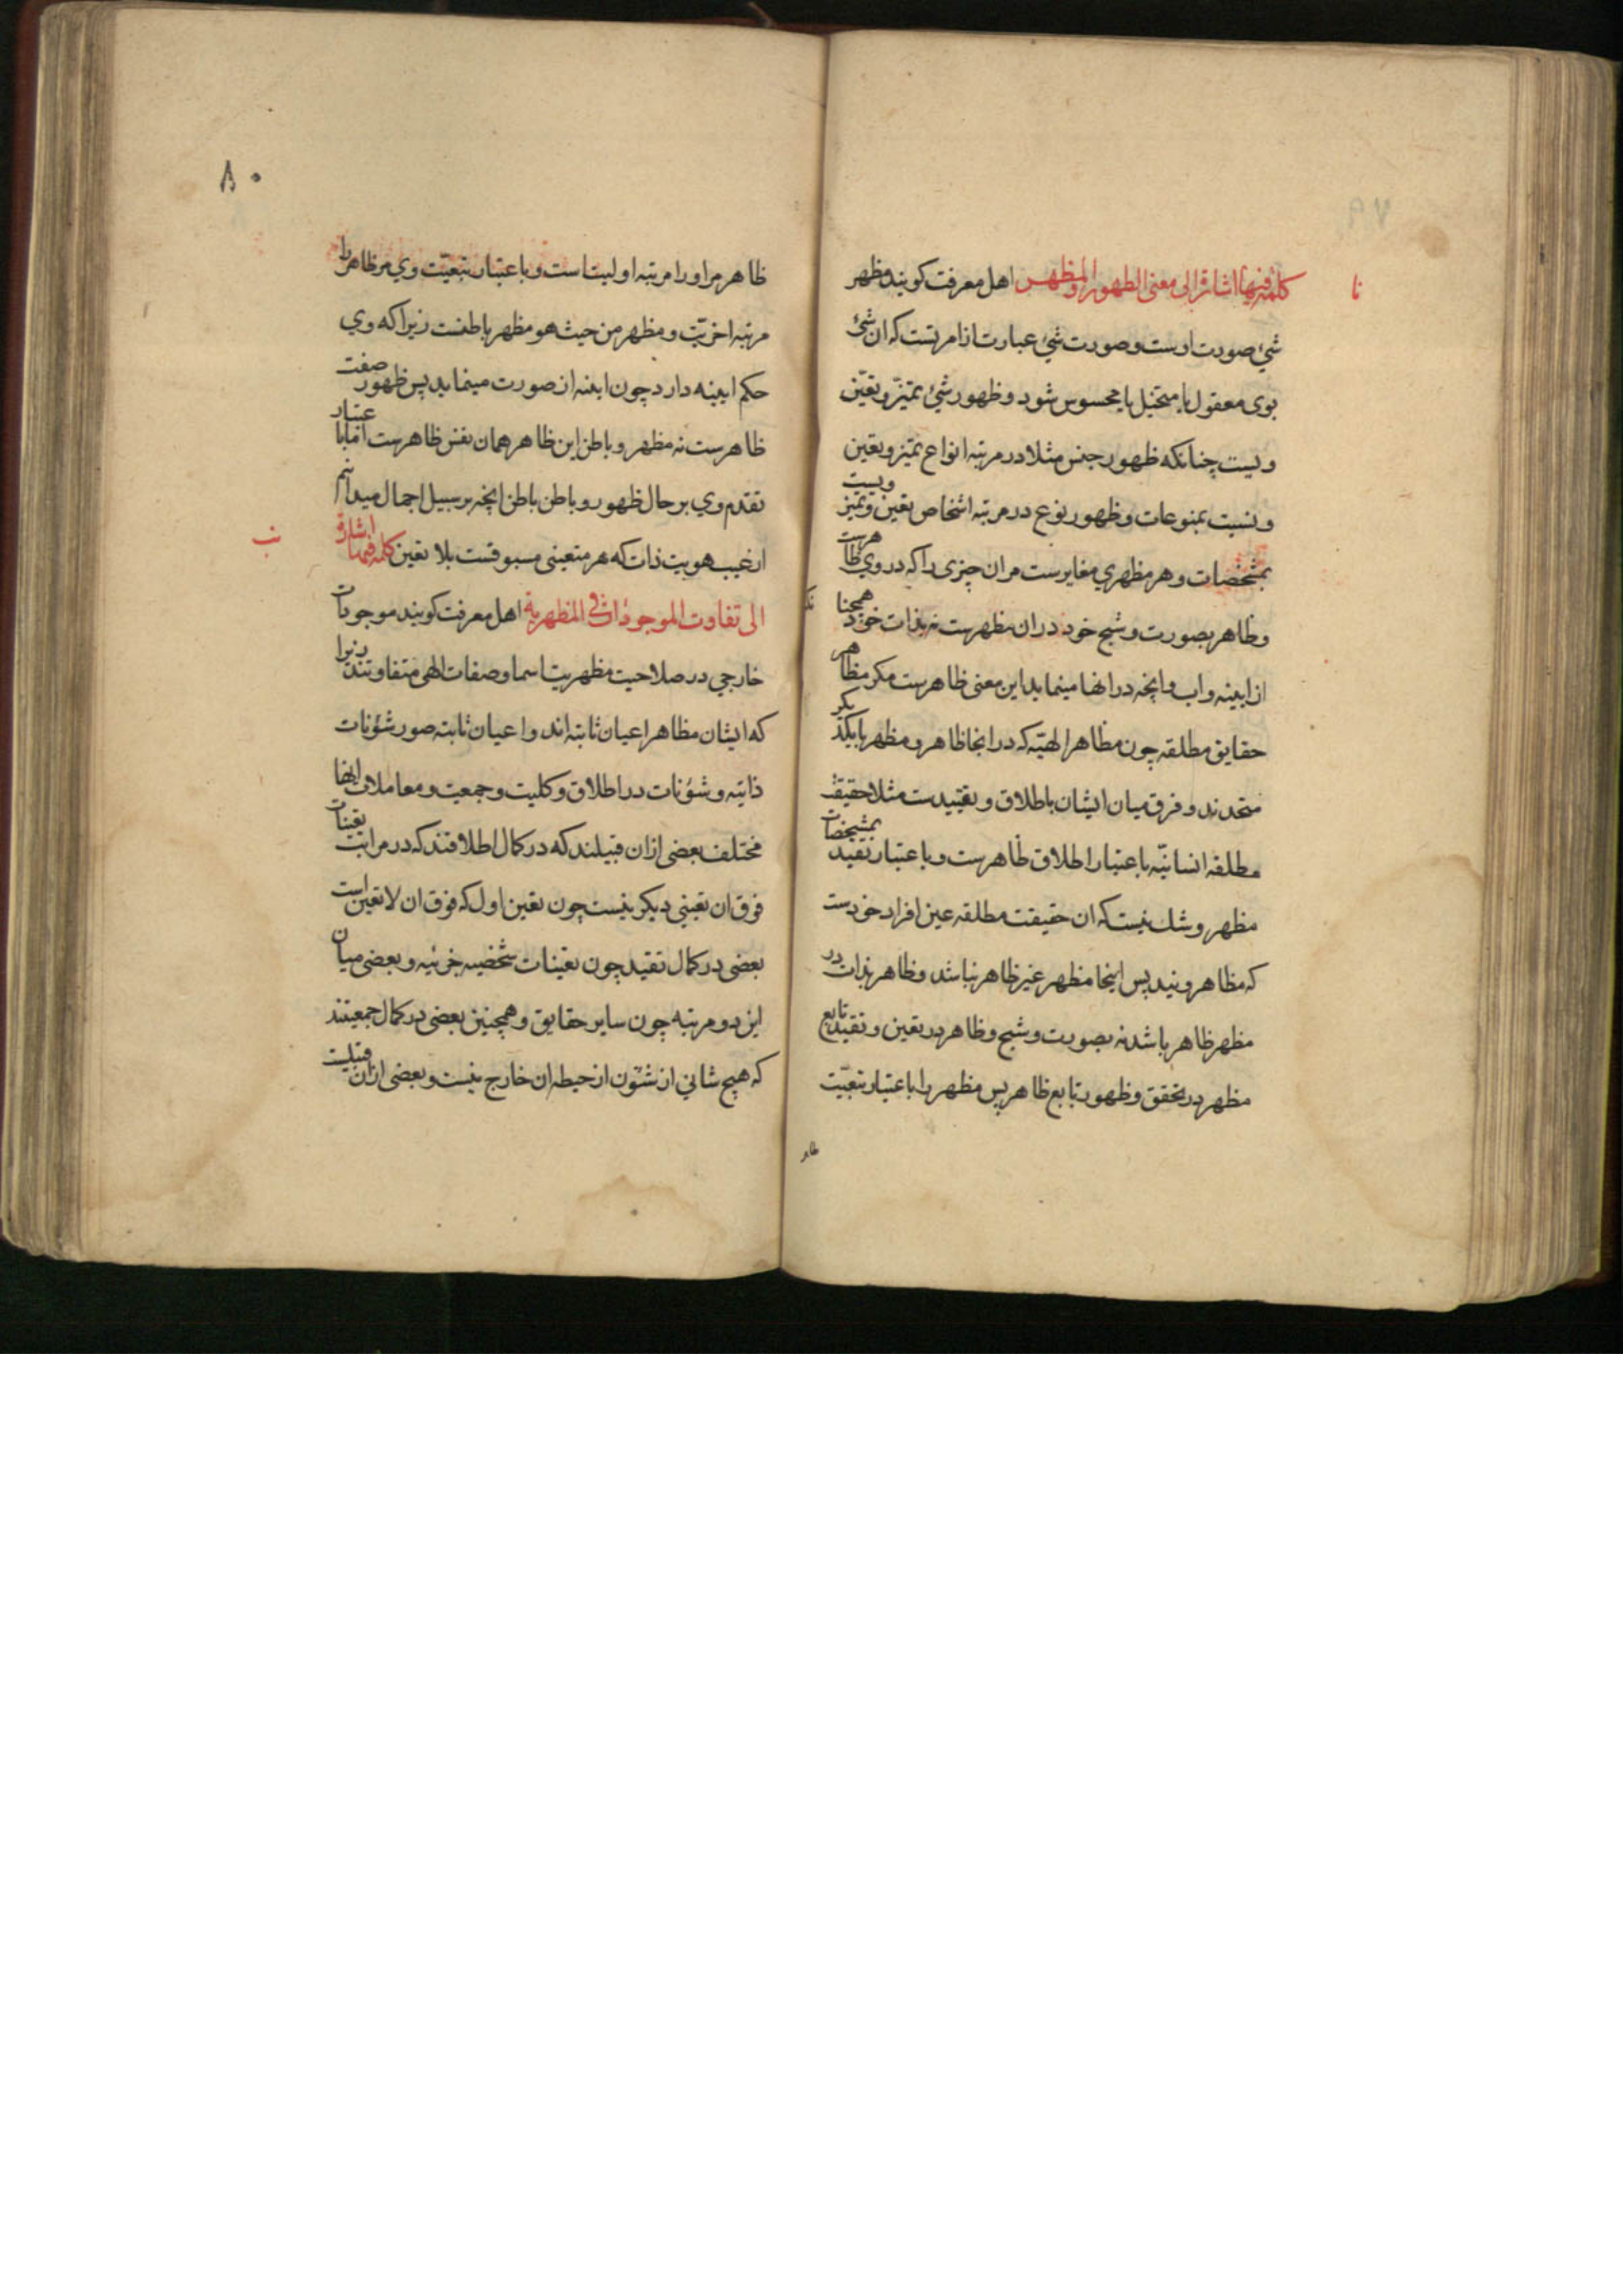 نا
كلمة فيها اشارة الى معنى الظهور والمظهر اهل معرفت كويند مظهر
شئ صورت اوست و صورت شئ عبارت از امریست که ان شئ
بوی معقول یا متخیل یا محسوس شود و ظهور شئ تمیّز و تعیّن
ویست چنانکه ظهور جنس مثلا در مرتبه انواع تمیز و تعین
ویست بمنوعات و ظهور نوع در مرتبه اشخاص تعین و تمیز ویست
بمشخصات و هر مظهری مغایرست مران چیزی را که در وی ظاهرست
و ظاهر بصورت و شبح خود دران مظهرست نه بذات خود همچنا
نک
از اینه و اب و انچه درانها مینماید این معنی ظاهرست مکر مظاهر
حقایق مطلقه چون مظاهر الهیّه که درانجا ظاهر و مظهر با یکدیکر
متحدند و فرق میان ایشان باطلاق و تقییدست مثلا حقیقت
مطلقه انسانیّه باعتبار اطلاق ظاهرست و باعتبار تقید بمشخصات
مظهر و شك نیست که ان حقیقت مطلقه عین افراد خودست
که مظاهر ویند پس اینجا مظهر غیر ظاهر نباشد و ظاهر بذات در
مظهر ظاهر باشد نه بصورت و شبح و ظاهر در تعین و تقید تابع
مظهر در تحقق و ظهور تابع ظاهر پس مظهر را باعتبار تبعیّت
ظاهر
۸۰
ظاهر مر او را مرتبه اولیت است و باعتبار تبعیّت وي مر ظاهر را
مرتبه اخریّت و مظهر من حیث هو مظهر باطنست زیرا که وي
حکم ایینه دارد چون اینه از صورت مینماید پس ظهور صفت
ظاهرست نه مظهر و باطن این ظاهر همان نفس ظاهرست اما باعتبار
تقدم وي بر حال ظهور و باطن باطن انچه بر سبیل اجمال میدانیم
از غیب هویت ذات که هر متعینی مسبوقست بلا تعین كلمة فيها اشارة
نب
الى تفاوت الموجودات في المظهرية اهل معرفت کویند موجودات
خارجی در صلاحیت مظهریت اسما و صفات الهی متفاوتند زیرا
که ایشان مظاهر اعیان ثابته اند و اعیان ثابته صور شؤنات
ذاتیه و شؤنات در اطلاق و کلیت و جمعیت و معاملات انها
مختلف بعضی ازان قبیلند که در کمال اطلاقند که در مراتب تعینات
فوق ان تعینی دیکر نیست چون تعین اول که فوق ان لا تعین است
بعضی در کمال تقید چون تعینات شخصیه جزئیه و بعضی میان
این دو مرتبه چون سایر حقایق و همچنین بعضی در کمال جمعیتند
که هیچ شانی از شئون از حیطه ان خارج نیست و بعضی ازان قبیلست